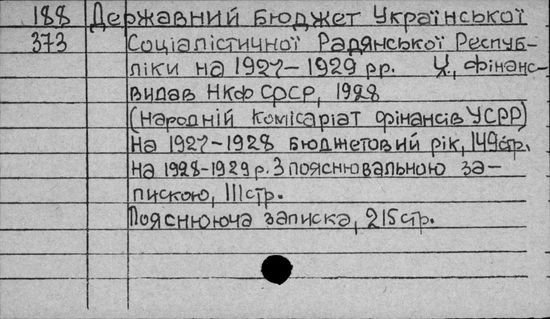 188 Державний Бюджет Української
373 Соціалістичної Радянської Респуб-
ліки на 1927-1929 рр. Х., фінанс-
видав НКФ СРСР, 1928
(Народній Комісаріат фінансів УСРР)
На 1927-1928 бюджетовий рік, 149стр.
на 1928-1929 р. З пояснювальною за-
пискою, 111стр.
Пояснююча записка, 215стр.